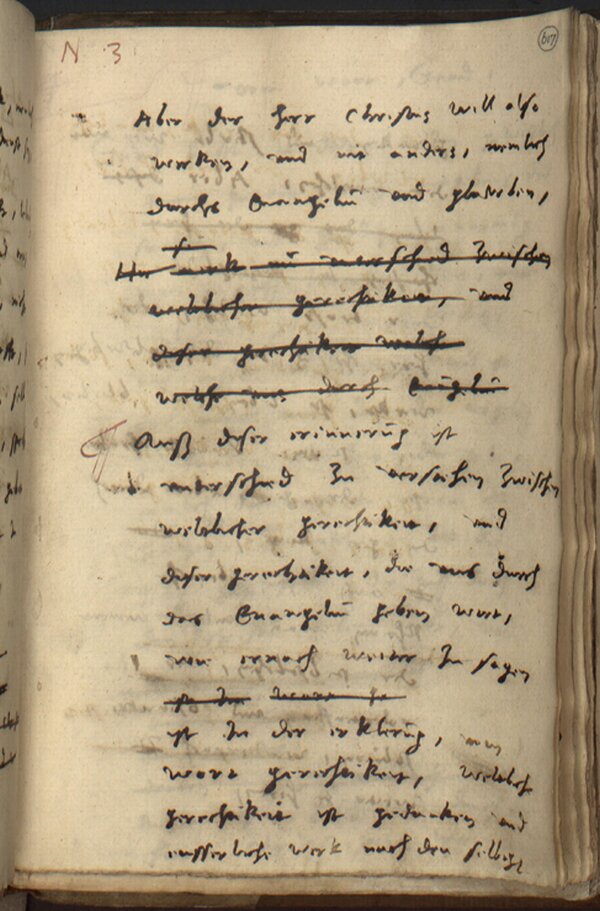 N 3
607
Aber der Herr Christus will also
wirken, und nit anders, nemlich
durchs Euangeliu und glauben,
Hie merk nu unterschied zwischen
weltlicher gerechtikeit, und
diser gerechtikeit welch
welche uns durch Eu͞geliu
Auß diser erinnerūg ist
unterschied zu verstehen zwischen
weltlicher gerechtikeit, und
diser gerechtikeit, die uns durch
das Euangeliu geben wirt,
wie ernach weiter zu sagen
ist in der erklerūg, vom
wort gerechtikeit, weltliche
gerechtikeit ist gedancken und
eusserliche werk nach den selbigē